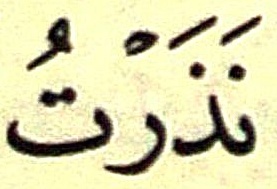 نَذَرْتُ